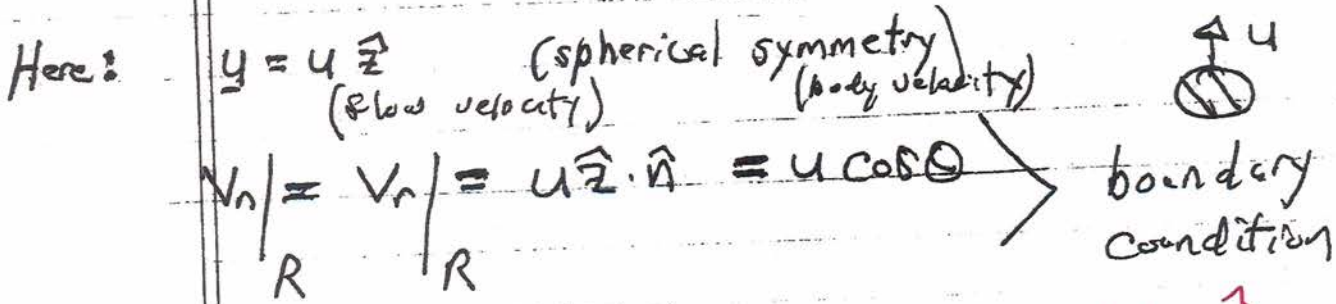 Here: u = u ẑ (spherical symmetry) u
(flow velocity) (body velocity)
Vn| = Vr| = u ẑ · n̂ = u cos θ boundary
R R condition